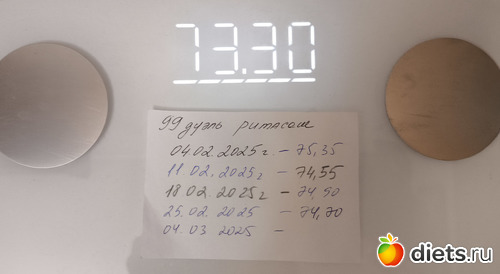 73.30
99 дуэль ритасаш
04.02.2025г. – 75,35
11.02.2025г – 74,55
18.02.2025г – 74,90
25.02.2025 – 74,70
04.03 2025 –
diets.ru